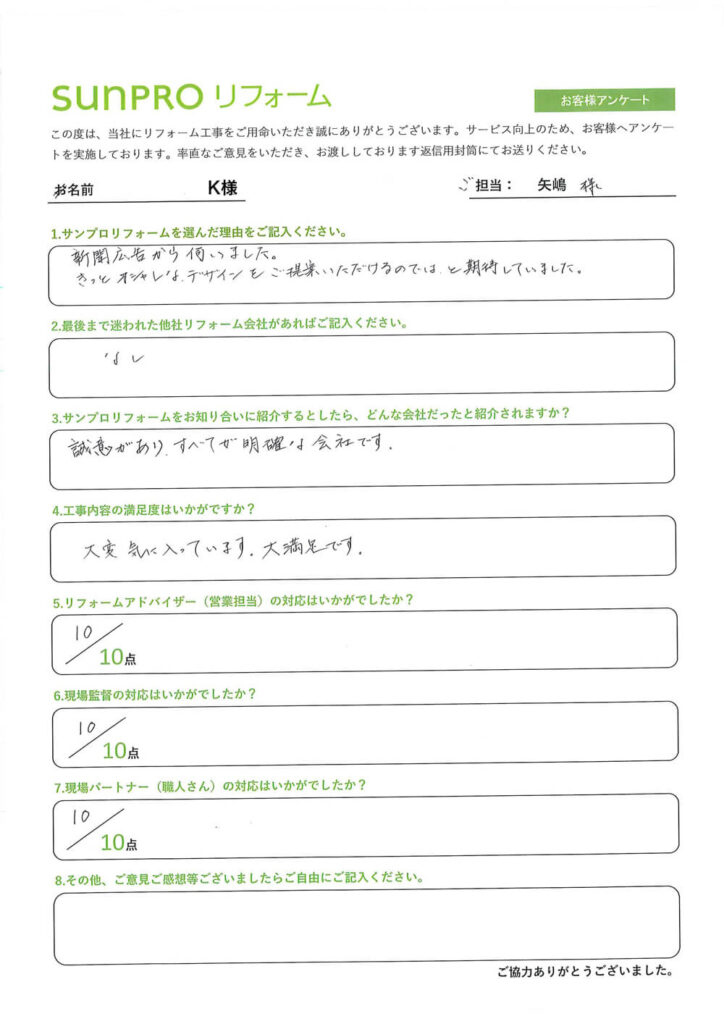 sunPRO リフォーム
お客様アンケート
この度は、当社にリフォーム工事をご用命いただき誠にありがとうございます。サービス向上のため、お客様へアンケー
トを実施しております。率直なご意見をいただき、お渡ししております返信用封筒にてお送りください。
お名前 K様 ご担当： 矢嶋 様
1.サンプロリフォームを選んだ理由をご記入ください。
新聞広告から伺いました。
きっとオシャレなデザインをご提案いただけるのでは、と期待していました。
2.最後まで迷われた他社リフォーム会社があればご記入ください。
なし
3.サンプロリフォームをお知り合いに紹介するとしたら、どんな会社だったと紹介されますか？
誠意があり、すべてが明確な会社です。
4.工事内容の満足度はいかがですか？
大変気に入っています。大満足です。
5.リフォームアドバイザー（営業担当）の対応はいかがでしたか？
10
10点
6.現場監督の対応はいかがでしたか？
10
10点
7.現場パートナー（職人さん）の対応はいかがでしたか？
10
10点
8.その他、ご意見ご感想等ございましたらご自由にご記入ください。
ご協力ありがとうございました。